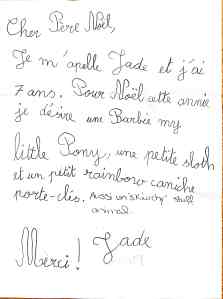 Cher Père Noël,
Je m'apelle Jade et j'ai
7 ans. Pour Noël cette année
je désire une Barbie my
little Pony, une petite sloth
et un petit rainbow caniche
porte-clés. Aussi un "skwchy" stuff
animal.
Merci! Jade